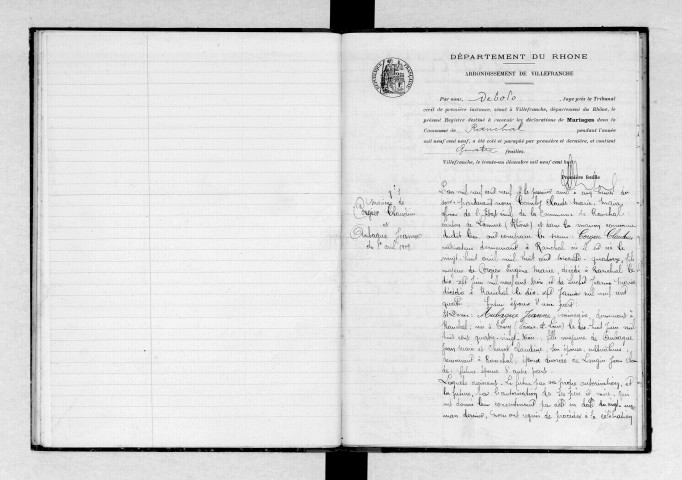 DÉPARTEMENT DU RHONE
ARRONDISSEMENT DE VILLEFRANCHE
Par nous, Debolo, Juge près le Tribunal
civil de première instance, séant à Villefranche, département du Rhône, le
présent Registre destiné à recevoir les déclarations de Mariages dans la
Commune de Ranchal pendant l'année
mil neuf cent neuf, a été coté et paraphé par première et dernière, et contient
Quatre feuilles.
Villefranche, le trente-un décembre mil neuf cent huit
Première feuille
REPUBLIQUE FRANÇAISE
Mariage de
Claudius
et
Aubague Jeanne
du 1er avril 1909
L'an mil neuf cent neuf et le premier avril à cinq heures du
soir pardevant nous Claude Marie, maire,
officier de l'état civil de la Commune de Ranchal
canton de Lamure (Rhône) et dans la maison commune
dudit lieu ont comparu le sieur
cultivateur demeurant à Ranchal où il est né le
vingt huit avril mil huit cent soixante quatorze, fils
majeur de Eugène Marie, décédé à Ranchal le
dix sept juin mil neuf cent trois et de Jeanne Marie
décédée à Ranchal le dix sept janvier mil neuf cent
quatre. futur époux d'une part
Et Dame Aubague Jeanne, ménagère, demeurant à
Ranchal, née à (Saône et Loire) le dix huit juin mil
huit cent quatre vingt trois, fille majeure de Aubague
Jean Marie et Claudine son épouse, cultivateurs,
demeurant à Ranchal, épouse divorcée de Jean Claude
future épouse d'autre part.
Lesquels agissant. Le futur par sa propre autorisation, et
la future, par l'autorisation de ses père et mère, qui
ont donné leur consentement par acte en date du vingt
mars dernier, nous ont requis de procéder à la célébration